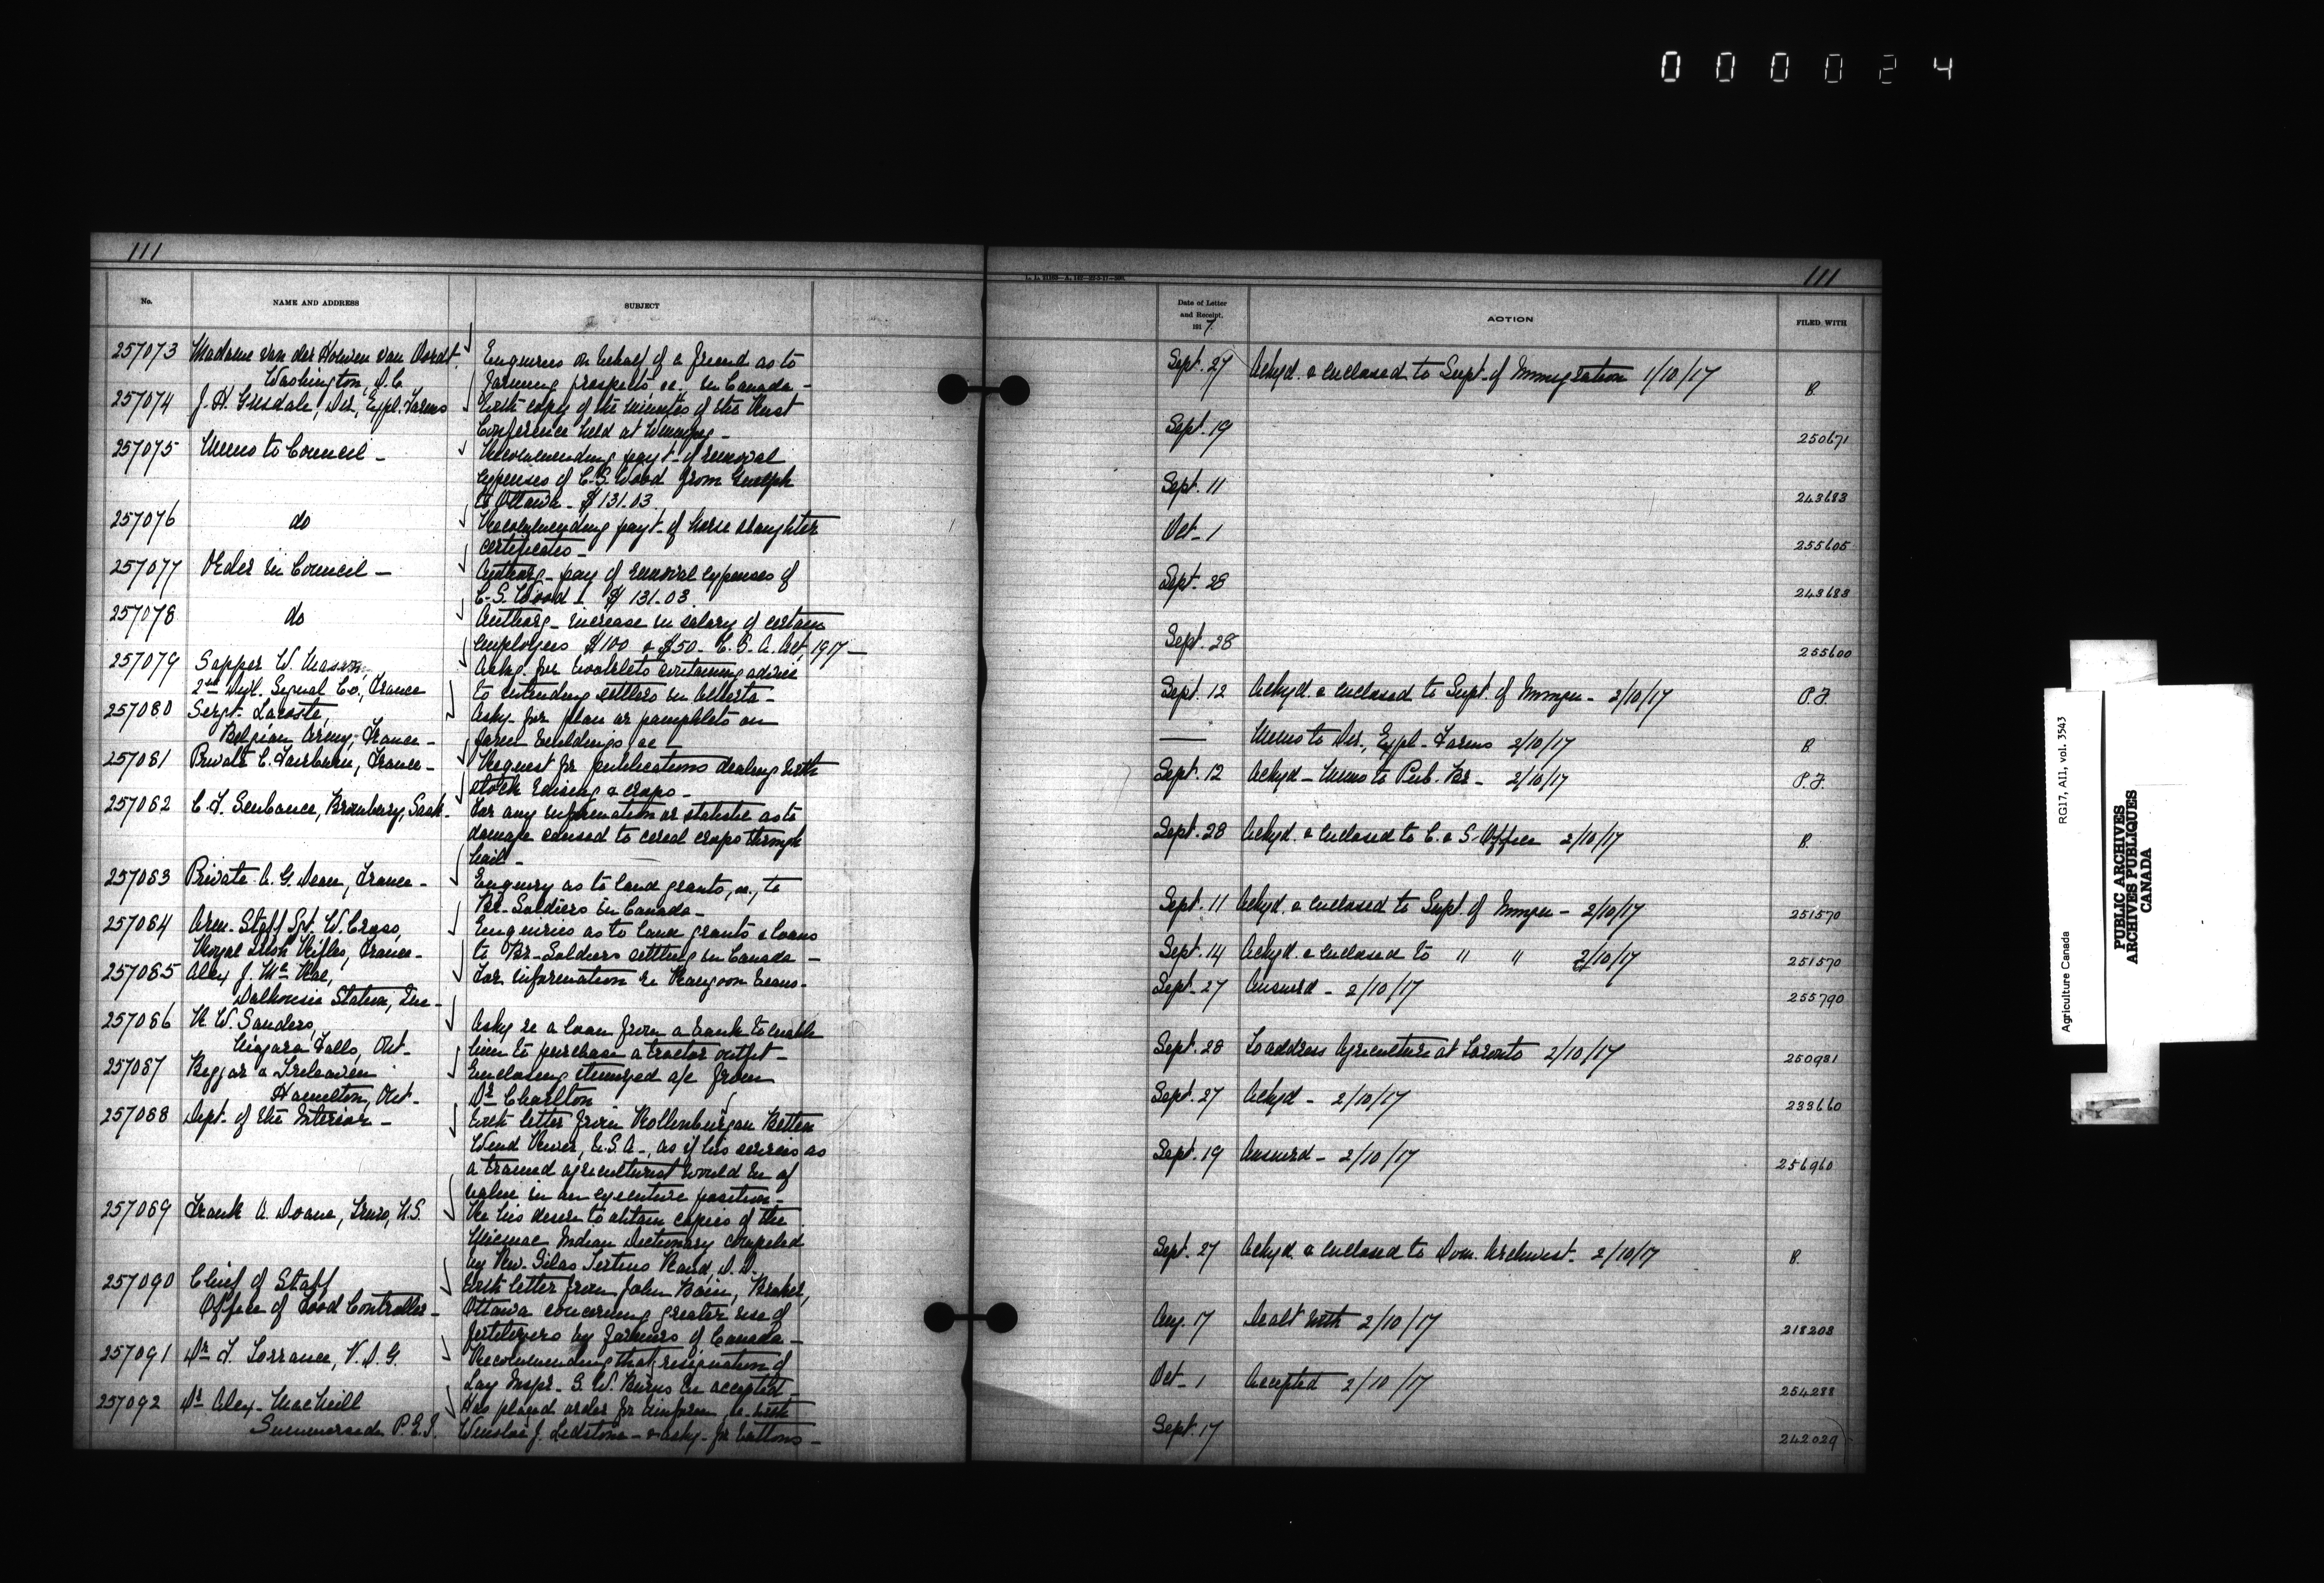 000024
111
111
No.
NAME AND ADDRESS
SUBJECT
Date of Letter
and Receipt,
1917
ACTION
FILED WITH
257073 Madame van der Houven van Oordt
Washington, D.C.
Enquiries on behalf of a friend as to
farming prospects, &c. in Canada -
Sept. 27 Ackgd. & enclosed to Supt. of Immigration 1/10/17 B.
257074 J. H. Grisdale, Dir., Expl. Farms
With copy of the minutes of the Rust
Conference held at Winnipeg -
Sept. 19 250671
257075 Memo to Council -
Recommending payt. of removal
expenses of C. S. Wood from Guelph
to Ottawa - $131.03
Sept. 11 243683
257076 do
Recommending payt. of horse slaughter
certificates -
Oct - 1 255605
257077 Order in Council -
Authorg - pay of removal expenses of
C. S. Wood - $131.03
Sept. 28 243683
257078 do
Authorg - increase in salary of certain
employees $100 & $50 - C. S. A. Act, 1917 -
Sept. 28 255600
257079 Sapper W. Mason,
2nd Divl. Signal Co., France
Askg. for booklets containing advice
to intending settlers in Alberta -
Sept. 12 Ackgd. & enclosed to Supt. of Immgn - 2/10/17 P.F.
257080 Sergt. Lacoste,
Belgian Army, France -
Askg. for plan or pamphlets on
farm buildings &c -
— Memo to Dir., Expl. Farms 2/10/17 B
257081 Private C. Fairburn, France -
Request for publications dealing with
stock raising & crops -
Sept. 12 Ackgd - Memo to Pub. Br - 2/10/17 P.F.
257082 C. F. Senbance, Sask -
For any information or statistic as to
damage caused to cereal crops through
hail -
Sept. 28 Ackgd. & enclosed to C. & S. Office 2/10/17 B.
257083 Private A. G. Dean, France -
Enquiry as to land grants, &c., to
Br. Soldiers in Canada -
Sept. 11 Ackgd. & enclosed to Supt. of Immgn - 2/10/17 251570
257084 Arm. Staff Sgt. W. Cross,
Royal Irish Rifles, France -
Enquiries as to land grants & loans
to Br. Soldiers settling in Canada -
Sept. 14 Ackgd. & enclosed to " " 2/10/17 251570
257085 Alex J. McRae,
Dalhousie Station, Que -
For information re Rangoon beans -
Sept. 27 Answrd - 2/10/17 255790
257086 W. Sanders,
Niagara Falls, Ont -
Askg re a loan from a bank to enable
him to purchase a tractor outfit -
Sept. 28 To address Agriculture at Toronto 2/10/17 250981
257087 Beggar & Treleaven
Hamilton, Ont -
Enclosing stamped a/c from
Dr Charlton
Sept. 27 Ackgd - 2/10/17 233660
257088 Dept. of the Interior -
With letter from Rollenburgan
Wind River, U.S.A -, as if his services as
a trained agriculturist would be of
value in an executive position -
Sept. 19 Answrd - 2/10/17 256960
257089 Frank A. Doane, Truro, N.S.
Re his desire to obtain copies of the
Micmac Indian Dictionary compiled
by Rev. Silas Tertius Rand, D.D.
Sept. 27 Ackgd. & enclosed to Dom. Archivist - 2/10/17 B.
257090 Chief of Staff
Office of Food Controller -
With letter from John Bain,
Ottawa concerning greater use of
fertilizers by farmers of Canada -
Aug. 17 Dealt with 2/10/17 218208
257091 Dr F. Torrance, V.D.G.
Recommending that resignation of
Lay Inspr. G. W. Burns be accepted -
Oct - 1 Accepted 2/10/17 254288
257092 Dr Alex. MacNeill
Summerside P.E.I.
Has placed order for uniform, &c with
Winslow J. Ledstone - & askg. for buttons -
Sept. 17 242029
Agriculture Canada RG17, A11, vol. 3543
PUBLIC ARCHIVES
ARCHIVES PUBLIQUES
CANADA